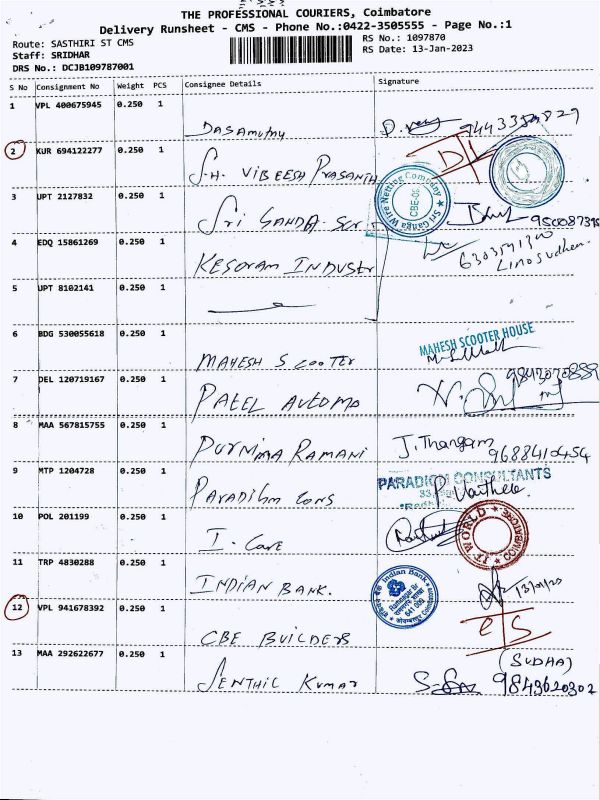 THE PROFESSIONAL COURIERS, Coimbatore
Delivery Runsheet - CMS - Phone No.:0422-3505555 - Page No.:1
Route: SASTHIRI ST CMS
RS No.: 1097870
Staff: SRIDHAR
RS Date: 13-Jan-2023
DRS No.: DCJB109787001
S No Consignment No Weight PCS Consignee Details Signature
1 VPL 400675945 0.250 1
2 KUR 694122277 0.250 1
S.H. VIBEESH PRASANTH
D/L
3 UPT 2127832 0.250 1
Sri Ganga Wire Netting Company
CBE-05
SRI
4 EDQ 15861269 0.250 1
KESORAM INDUSTR
5 UPT 8102141 0.250 1
6 BDG 530055618 0.250 1
MAHESH SCOOTER
MAHESH SCOOTER HOUSE
7 DEL 120719167 0.250 1
PATEL AUTOMO
8 MAA 567815755 0.250 1
PURNIMA RAMANI
J. Thangam
9688410454
9 MTP 1204728 0.250 1
PARADIGM CONS
PARADIGM CONSULTANTS
10 POL 201199 0.250 1
I. Care
IT WORLD
COIMBATORE
11 TRP 4830288 0.250 1
INDIAN BANK.
Indian Bank
641 009
12 VPL 941678392 0.250 1
CBE BUILDERS
13 MAA 292622677 0.250 1
SENTHIL KUMAR
(SUDHA)
9843620302